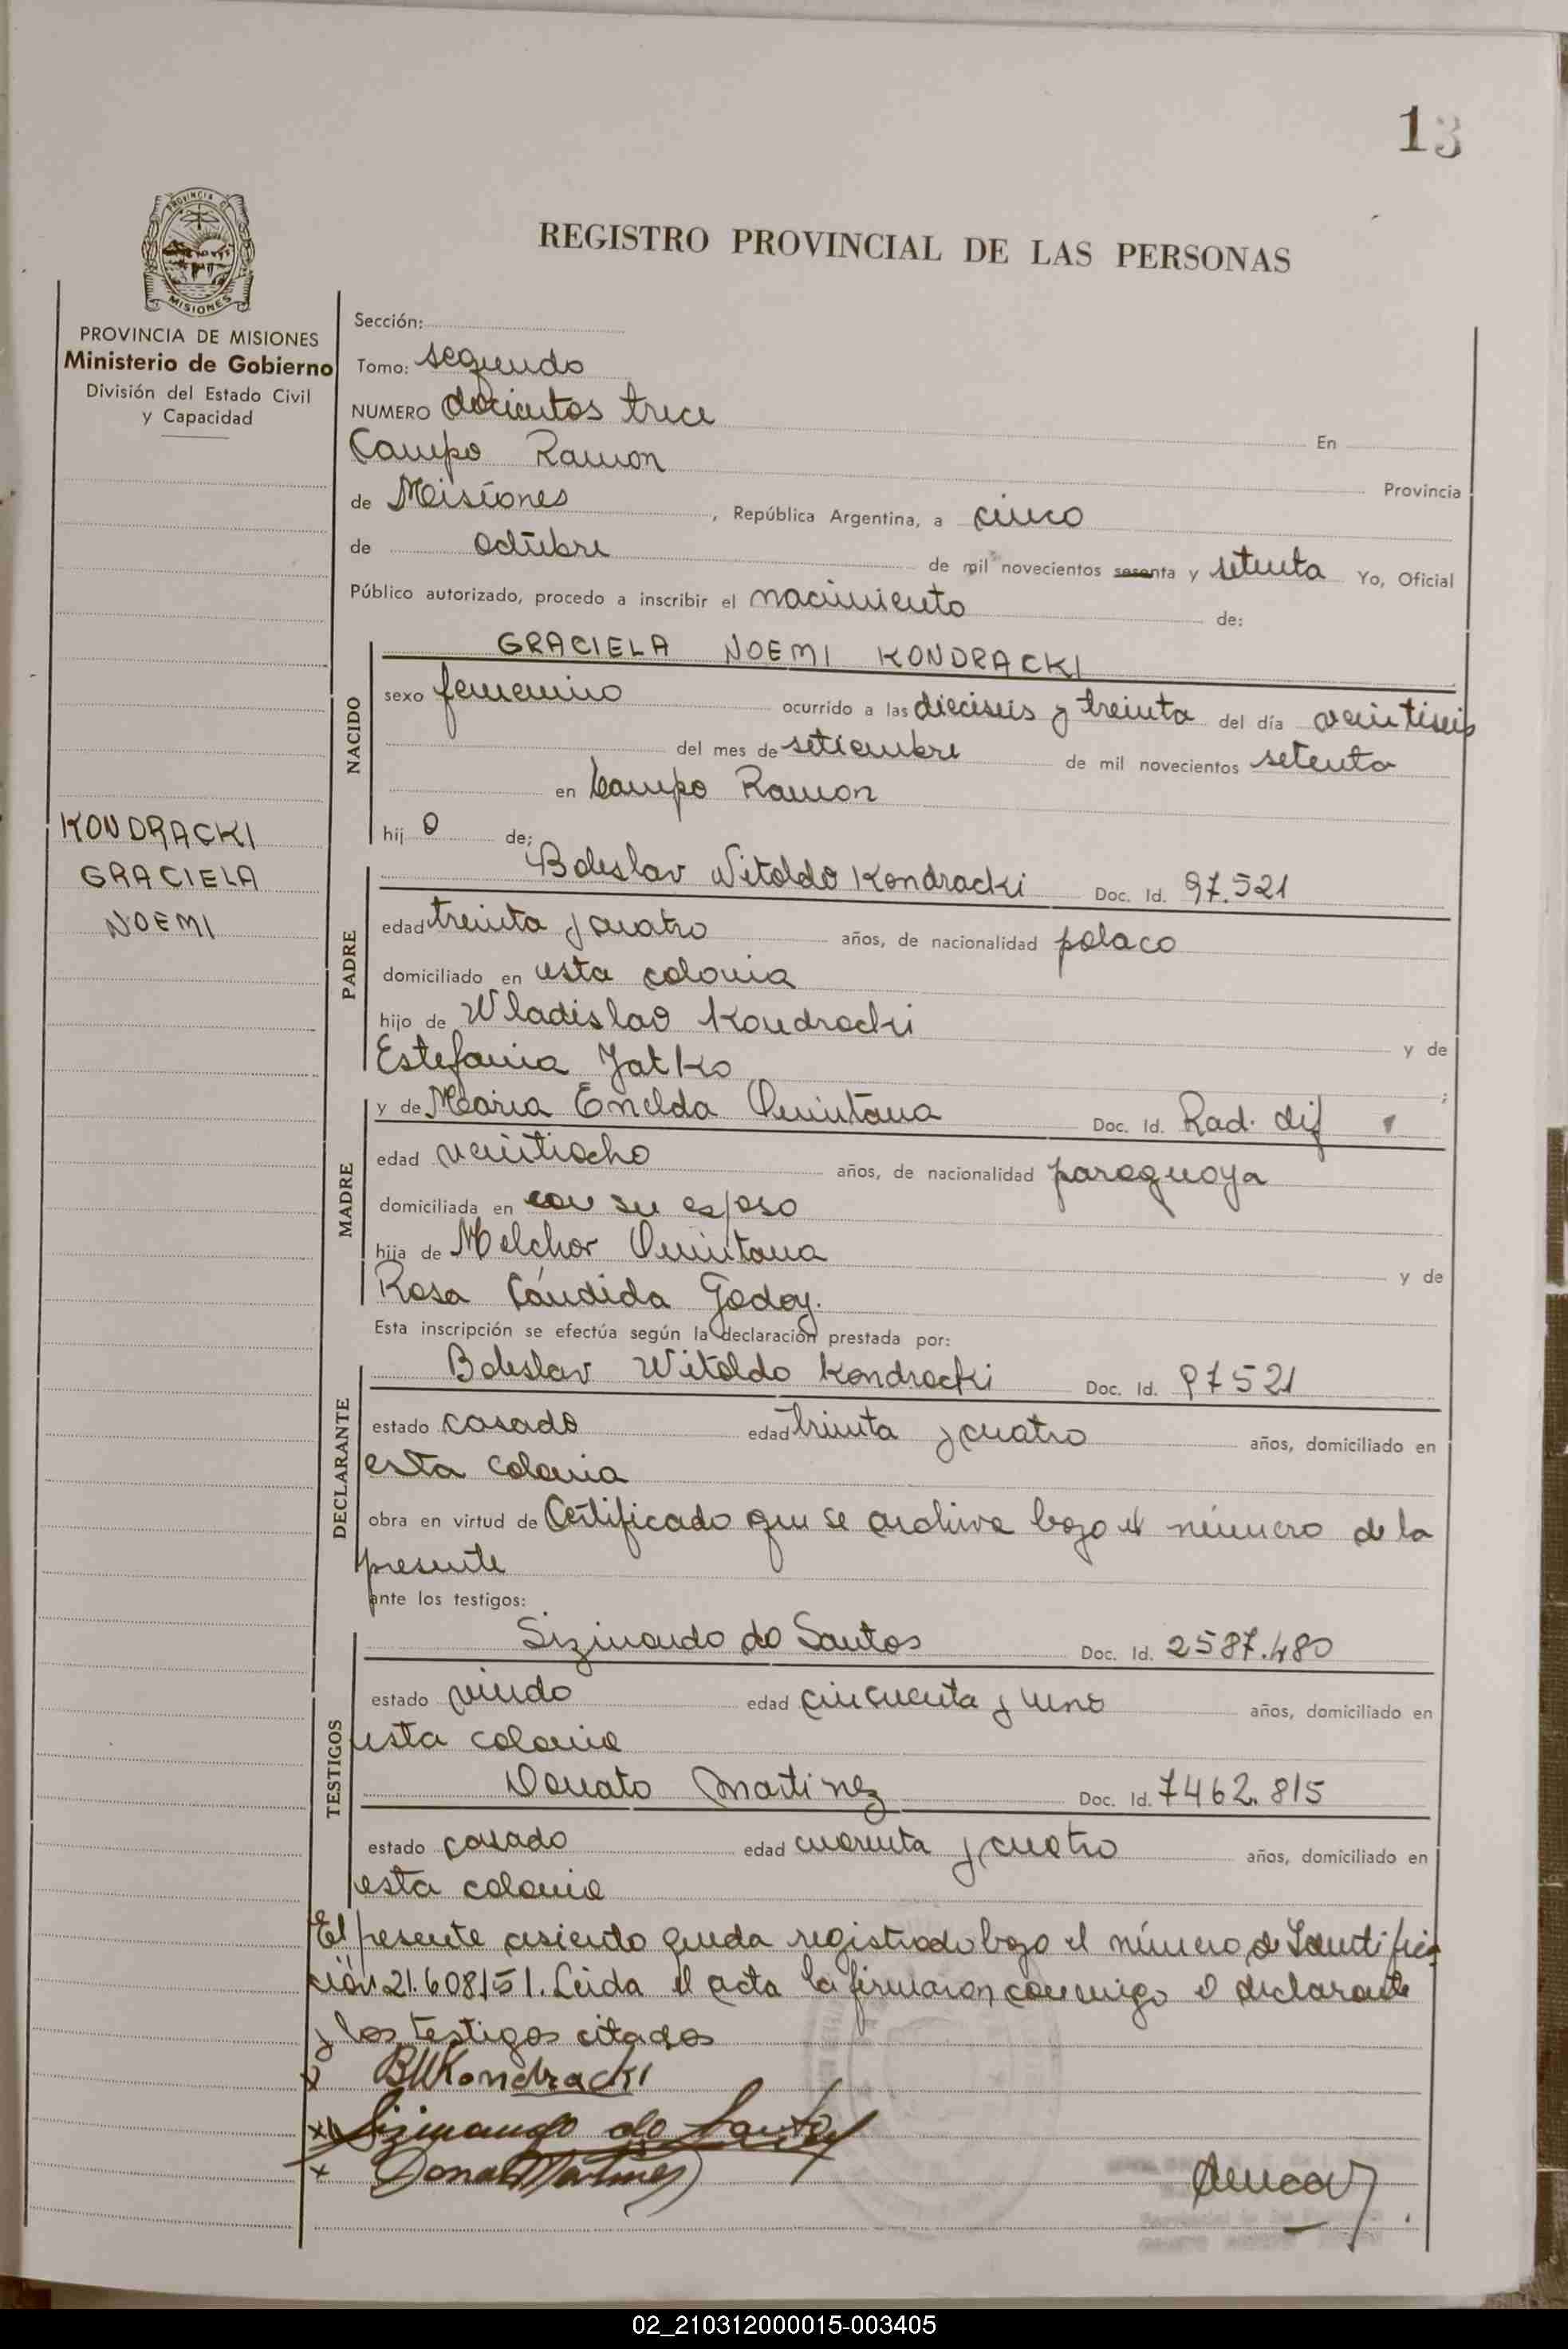 13
REGISTRO PROVINCIAL DE LAS PERSONAS
PROVINCIA DE MISIONES
PROVINCIA DE MISIONES
Ministerio de Gobierno
División del Estado Civil
y Capacidad
KONDRACKI
GRACIELA
NOEMI
Sección:
Tomo: segundo
NUMERO docientos trece En
Campo Ramon Provincia
de Misiones, República Argentina, a cinco
de octubre de mil novecientos sesenta y setenta Yo, Oficial
Público autorizado, procedo a inscribir el nacimiento de:
NACIDO
GRACIELA NOEMI KONDRACKI
sexo femenino ocurrido a las dieciseis y treinta del día veintiseis
del mes de setiembre de mil novecientos setenta
en Campo Ramon
hij o de:
PADRE
Boleslav Witoldo Kondracki Doc. Id. 97.521
edad treinta y cuatro años, de nacionalidad polaco
domiciliado en esta colonia
hijo de Wladislao Kondracki y de
Estefania Jatko ;
MADRE
y de Maria Enelda Quintana Doc. Id. Rad. dif
edad veintiocho años, de nacionalidad paraguaya
domiciliada en con su esposo
hija de Melchor Quintana y de
Rosa Cándida Godoy.
Esta inscripción se efectúa según la declaración prestada por:
DECLARANTE
Boleslav Witoldo Kondracki Doc. Id. 97521
estado casado edad treinta y cuatro años, domiciliado en
esta colonia
obra en virtud de Certificado que se archiva bajo el número de la
presente
ante los testigos:
TESTIGOS
Sizinando do Santos Doc. Id. 2587.480
estado viudo edad cincuenta y uno años, domiciliado en
esta colonia
Donato Martinez Doc. Id. 7462.815
estado casado edad cuarenta y cuatro años, domiciliado en
esta colonia
El presente asiento queda registrado bajo el número de Identifica
ción 21.608.151. Leida el acta la firmaron conmigo el declarante
y los testigos citados
x BWKondracki
x Sizinando do Santos
x Donato Martinez
02_210312000015-003405